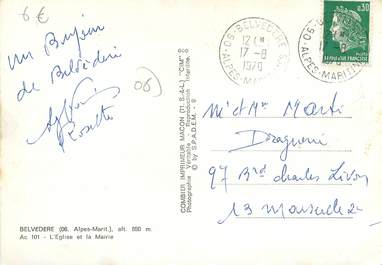 6€
un Bonjour
de Belvédère
06)
COMBIER IMPRIMEUR MACON (71. S.-&-L.) "CIM"
Photographie Véritable - Reproduction Interdite
© by S.P.A.D.E.M.
90 - BELVEDERE
ALPES-MARITIMES
12H
17-8
1970
0,30
Mr et Mme Marti
97 Bd Charles Livon
13 Marseille 2e
BELVEDERE (06. Alpes-Marit.), alt. 850 m.
Ac 101 - L'Eglise et la Mairie